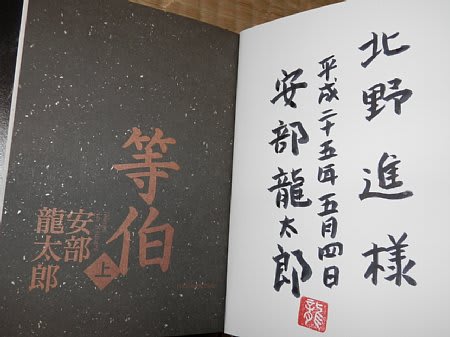 北野進様
平成二十五年五月四日
安部龍太郎
龍
等伯
上
安部
龍太郎